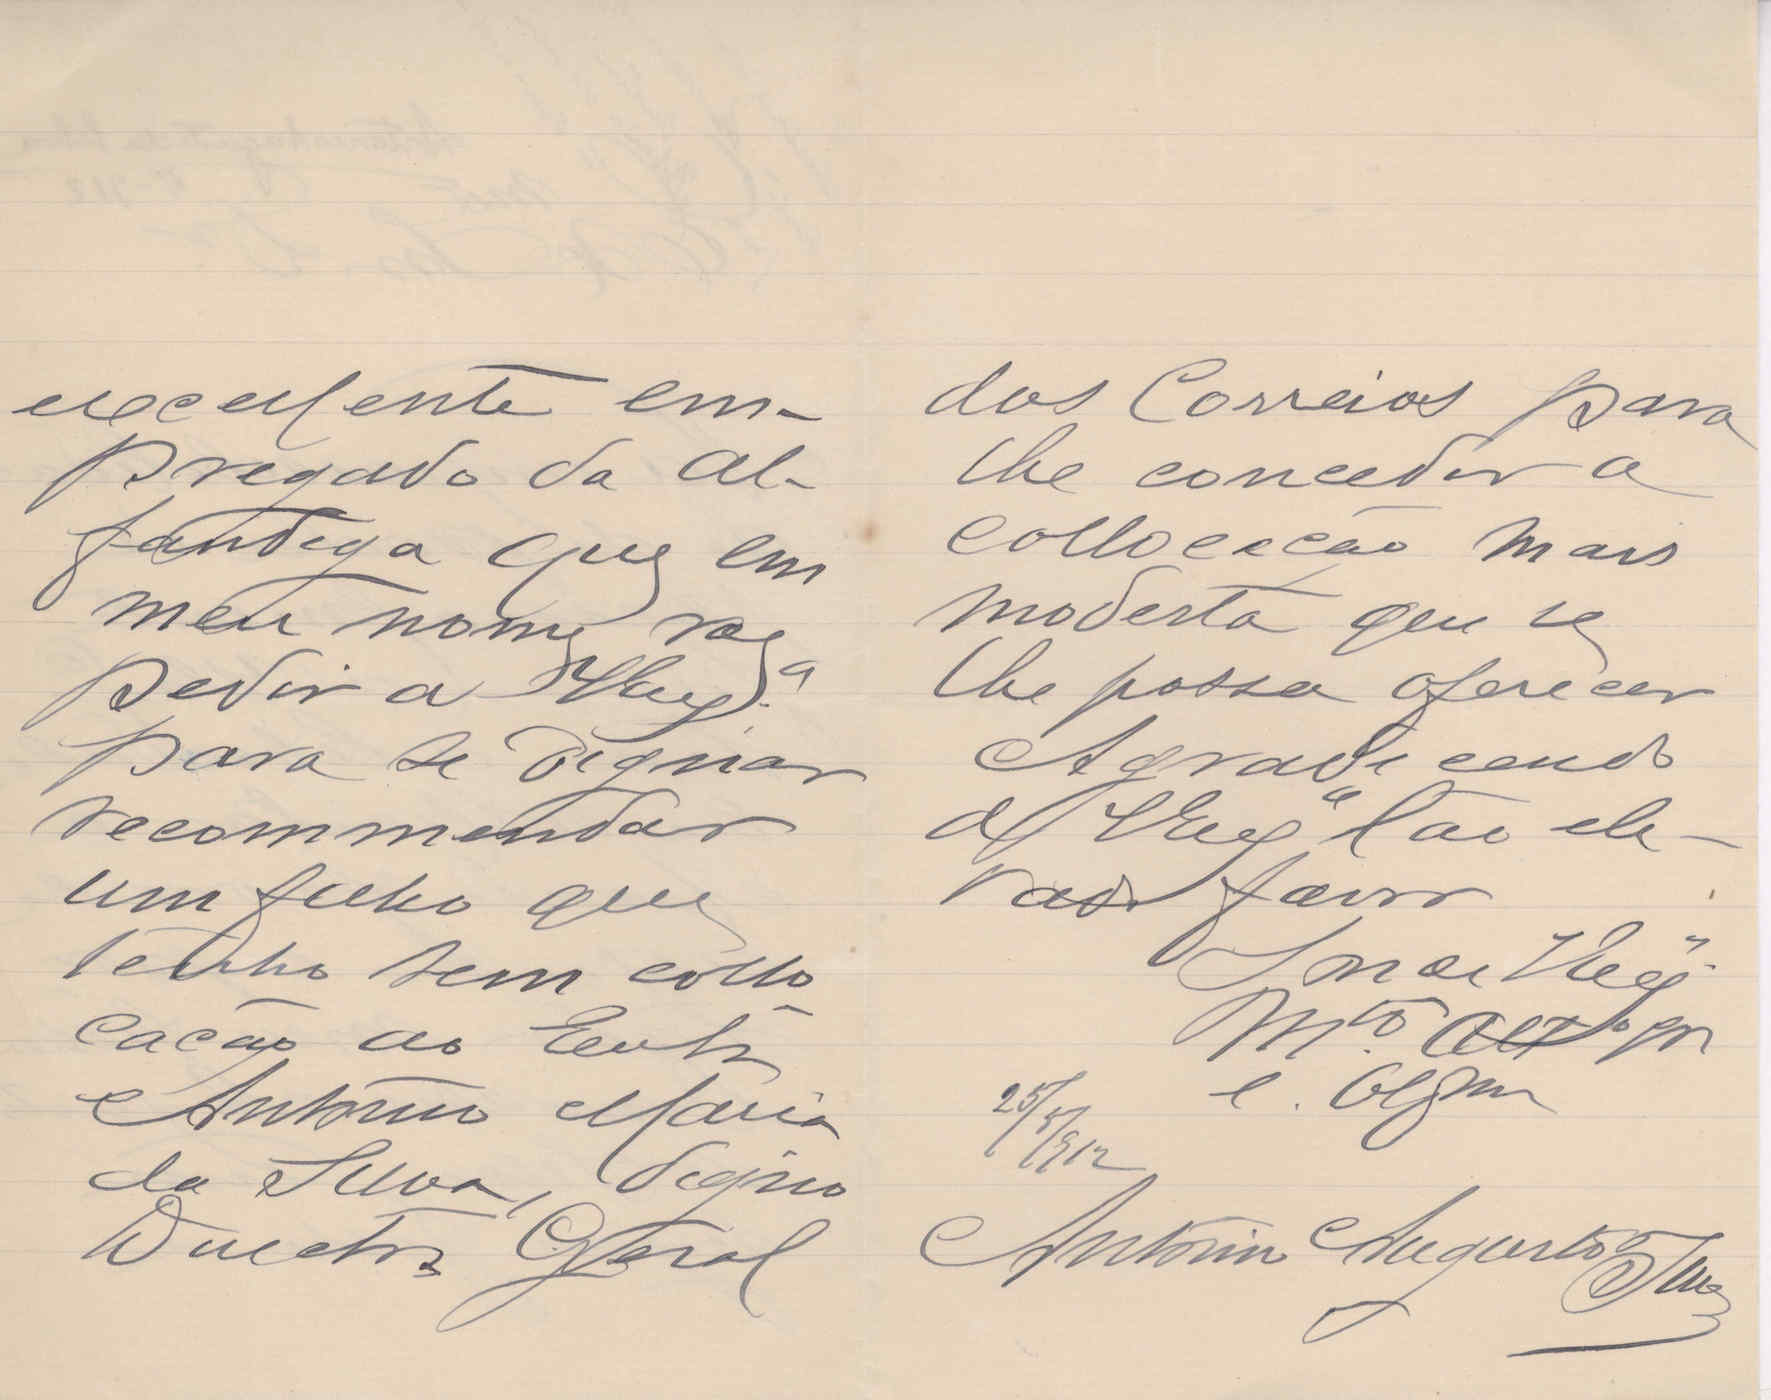 excellente em-
pregado da al-
fandega que em
meu nome vae
pedir a V Exª
para se dignar
recommendar
um filho que
tenho sem collo
cação ao Exmo Sr
Antonio Maria
da Silva, digno
Director Geral
dos Correios para
lhe conceder a
collocação mais
modesta que se
lhe possa oferecer
Agradecendo
a V Exª tão ele-
vado favor
Sou de V Exª
Mto Atto Vor
e Obgdo
25/5/912
Antonio Augusto Silva